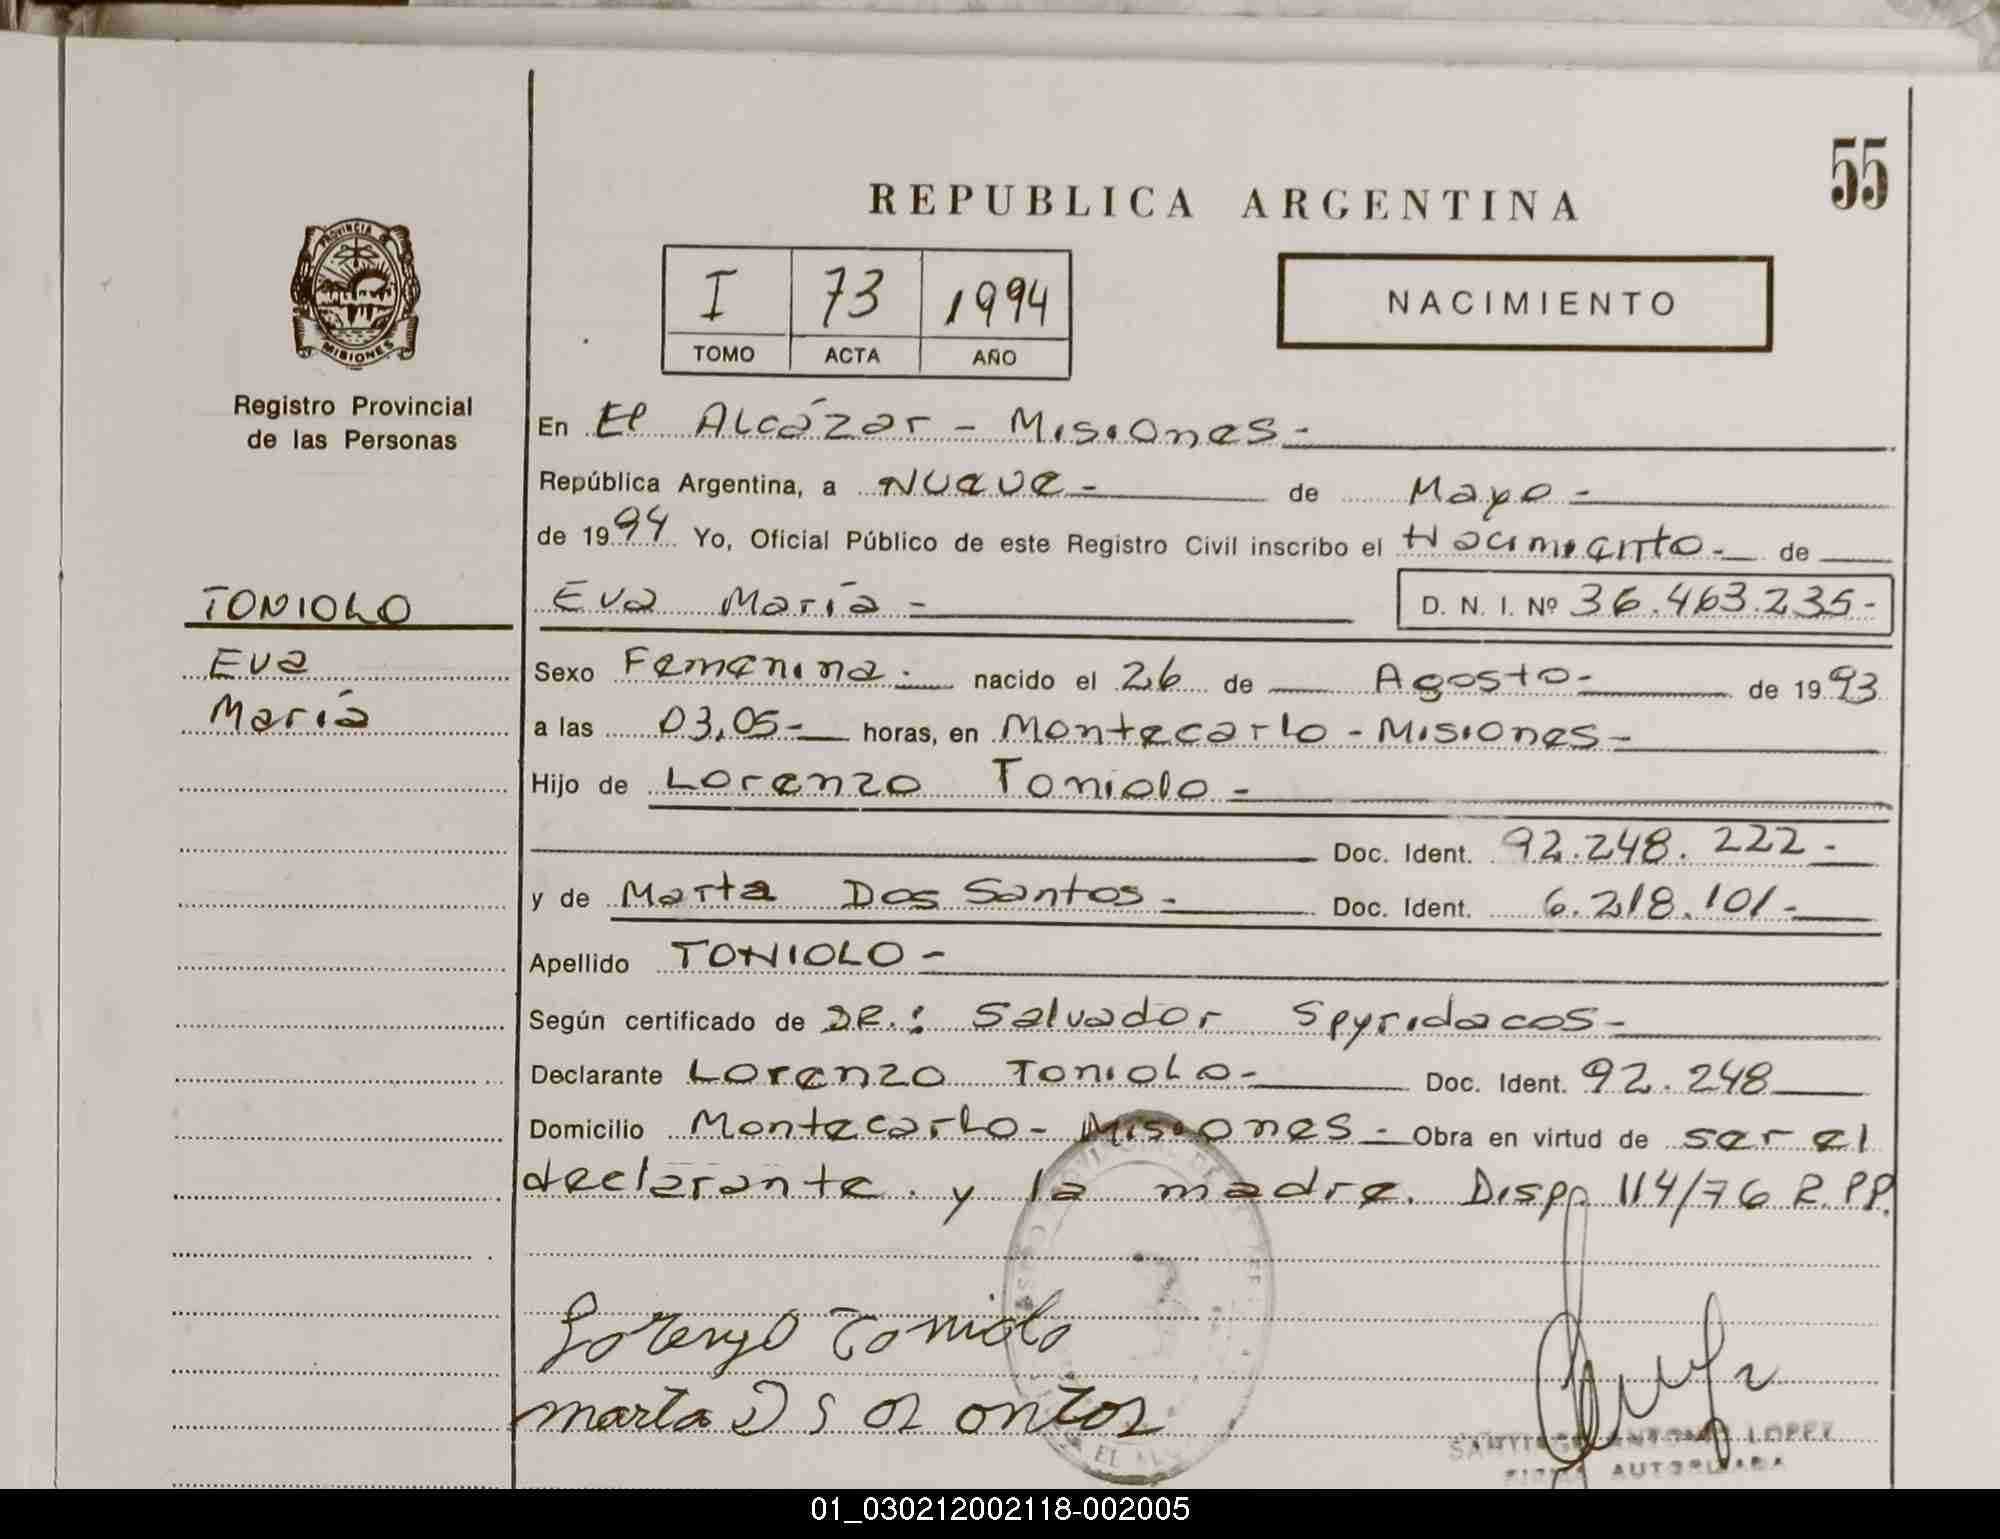 55
REPUBLICA ARGENTINA
PROVINCIA DE
MISIONES
Registro Provincial
de las Personas
I 73 1994
TOMO ACTA AÑO
NACIMIENTO
En El Alcázar - Misiones -
República Argentina, a Nueve - de Mayo -
de 1994 Yo, Oficial Público de este Registro Civil inscribo el Nacimiento - de
TONIOLO
Eva María - D. N. I. Nº 36.463.235-
Eva
María
Sexo Femenina - nacido el 26 de Agosto - de 1993
a las 03,05- horas, en Montecarlo - Misiones -
Hijo de Lorenzo Toniolo -
Doc. Ident. 92.248.222 -
y de Marta Dos Santos - Doc. Ident. 6.218.101-
Apellido TONIOLO -
Según certificado de DR.: Salvador Spyridacos -
Declarante Lorenzo Toniolo - Doc. Ident. 92.248
Domicilio Montecarlo - Misiones - Obra en virtud de ser el
declarante y la madre. Disp. 114/76 R.P.P.
Lorenzo Toniolo
marta D S
SANTIAGO ANTONIO LOPEZ
FIRMA AUTORIZADA
01_030212002118-002005